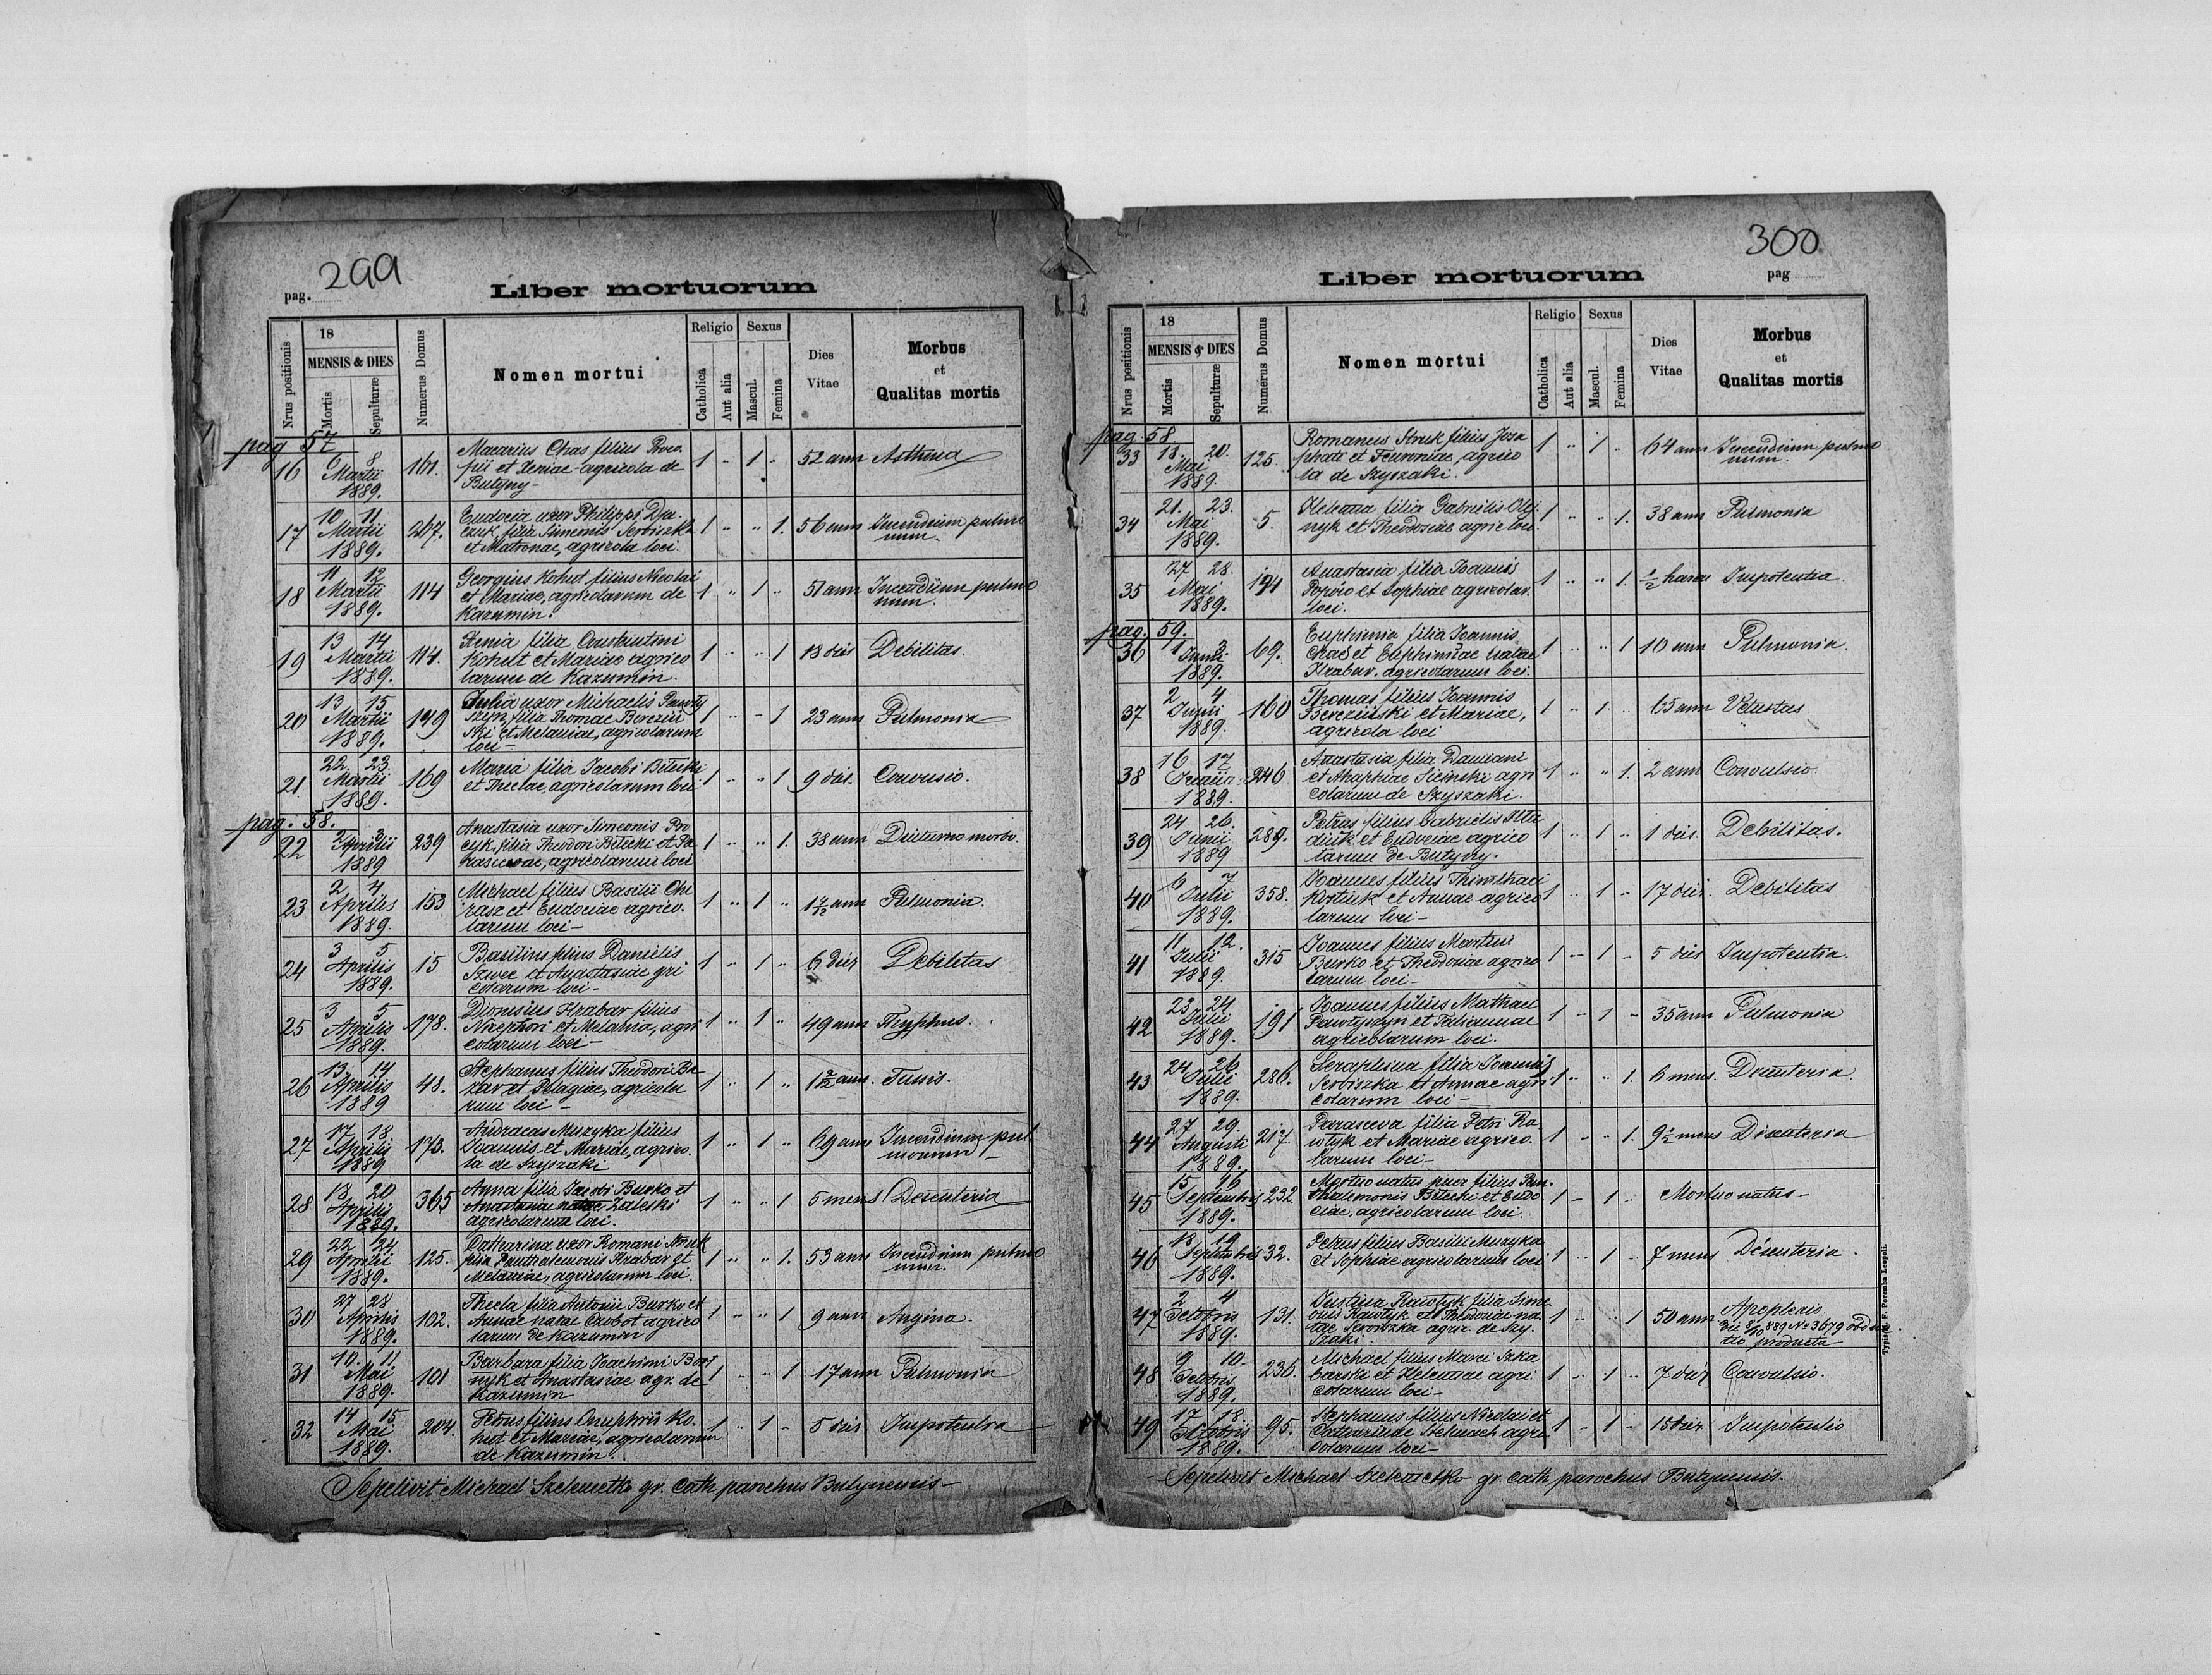 299
pag.
Liber mortuorum
Nrus positionis
18
MENSIS & DIES
Mortis
Sepulturæ
Numerus Domus
Nomen mortui
Religio
Catholica
Aut alia
Sexus
Mascul.
Femina
Dies
Vitae
Morbus
et
Qualitas mortis
pag 57
16 6 8 Martii 1889. 161. Macarius Chas filius Proco 1 " 1 " 52 ann Asthma
pii et Xeniae agricola de
Butyny-
17 10 11 Martii 1889. 267. Eudocia uxor Philippi 1 " " 1. 56 ann Incendium pulmo
filia Simeonis Serbiszka num.
et Matronae, agricola loci.
18 11 12 Martii 1889. 114 Georgius Kohut filius Nicolai 1 " 1 " 51 ann Incendium pulmo
et Mariae, agricolarum de num.
Kazumin.
19 13 14 Martii 1889. 114. Xenia filia Constantini 1 " " 1 18 dies Debilitas.
Kohut et Mariae agrico
larum de Kazumin.
20 13 15 Martii 1889. 149 Julia uxor Michaelis Pawoty 1 " " 1 23 ann Pulmonia
szyn, filia Thomae Bereziń
ski et Melaniae, agricolarum
loci-
21. 22. 23. Martii 1889. 169 Maria filia Jacobi Bitecki 1 " " 1 9 dies. Convusio.
et Theclae, agricolarum loci
pag. 58.
22 2 3 Aprilii 1889 239 Anastasia uxor Simeonis Pro 1 " " 1. 38 ann Diuturno morbo.
cyk, filia Theodori Bitecki et Pa
rascevae, agricolarum loci
23 2 4 Aprilis 1889. 153 Michael filius Basilii Chi 1 " 1 " ann Pulmonia.
rasz et Eudociae agrico.
larum loci-
24 3 5 Aprilis 1889. 15 Basilius filius Danielis 1 " 1 " 6 dies Debiletas
Szwec et Anastasiae gri
colarum loci-
25 3 5 Aprilis 1889. 178. Dionisius Hrabar filius 1 " 1 " 49 ann Thyphus.
Nicephori et Melahia, agri
colarum loci-
26 13 14 Aprilis 1889 48. Stephanus filius Theodori 1 " 1 " ann. Tussis.
et Pelagiae, agricola
rum loci-
27 17 18 Aprilis 1889 173. Andraeas Muzyka filius 1 " 1 " 69 ann Incendium pul
Joannis et Mariae, agrico. monum
la de Szyszaki
28 18 20 Aprilis 1889. 365 Anna filia Jacobi Burko et 1 " " 1 5 mens Desenteria
Anastasia natae Zaleski
agricolarum loci.
29 22 24 Aprilii 1889. 125. Catharina uxor Romani Struk 1 " " 1. 53 ann Incendium pulmo
filia Panthalemonis Hrabar et num.
Melaniae, agricolarum loci.
30 27 28 Aprilis 1889. 102. Thecla filia Antonii Burko et 1 " " 1 9 ann Angina.
Annae natae Czobot agrico
larum de Kazumin
31 10. 11 Mai 1889. 101 Barbara filia Joachimi 1 " " 1 17 ann Pulmonia
nyk et Anastasiae agr. de
Kazumin
32 14 15. Mai 1889. 204. Petrus filius Onuphrii Ko. 1 " 1 - 5 dies Impotentia
hut et Mariae, agricolarum
de Kazumin.
Sepelivit Michael Szelemetko gr. cath parochus Butynensis-
300
pag
Liber mortuorum
Nrus positionis
18
MENSIS & DIES
Mortis
Sepulturæ
Numerus Domus
Nomen mortui
Religio
Catholica
Aut alia
Sexus
Mascul.
Femina
Dies
Vitae
Morbus
et
Qualitas mortis
pag. 58
33 18. 20. Mai 1889. 125. Romanus Struk filius Joza 1 " 1 " 64 ann Incendium pulmo
phati et Feuroniae, agrico num.
la de Szyszaki.
34 21. 23. Mai 1889. 5. Heleana filia Gabrielis Olij 1 " " 1. 38 ann Pulmonia
nyk et Theodosiae agric loci.
35 27 28. Mai 1889. 194 Anastasia filia Joannis 1 " " 1. ½ horae Impotentia.
Popóio et Sophiae agricolar.
loci.
pag. 59.
36 1 3 Junii 1889. 69. Euphimia filia Joannis 1 " " 1 10 ann Pulmonia.
Chas et Euphimiae natae
Hrabar, agricolarum loci.
37 2 4 Junii 1889. 160 Thomas filius Joannis 1 " 1 " 65 ann Vetustas
Bereziński et Mariae,
agricola loci
38 16 17 Junii 1889. 246 Anastasia filia Damiani 1 " " 1. 2 ann Convulsio
et Ahaphiae Siciński agri
colarum de Szyszaki.
39 24 26. Junii 1889 289. Petrus filius Gabrielis 1 " 1 " 1 dies. Debilitas.
diuk et Eudociae agrico
larum de Butyny.
40 6 7 Julii 1889. 358. Joannes filius Thimthaei 1 " 1 " 17 dies. Debilitas
Kostiuk et Annae agrico
larum loci-
41 11 12. Julii 1889. 315 Joannes filius Martini 1 " 1 " 5 dies Impotentia.
Burko et Theodoziae agrico
larum loci-
42 23 24 Julii 1889. 191 Joannes filius Mathaei 1 - 1 " 35 ann Pulmonia
Pawotyszyn et Talianniae
agricolarum loci.
43 24 26 Julii 1889. 286. Seraphina filia Joannis 1 " " 1. 6 mens. Desenteria.
Serbiszka et Annae agri
colarum loci-
44 27 29. Augusti 1889. 217. Parasceva filia Petri Ra 1 " " 1. 9½ mens Disenteria
wtyk et Mariae agrico.
larum loci-
45 15 16 Septembris 1889. 232. Mortuo natus puer filius Pan. 1 - 1 " Mortuo natus-
thalemonis Bitecki et Eudo
ciae, agricolarum loci.
46 18 19 Septembris 1889. 32. Petrus filius Basilii Muzyka 1 " 1 " 7 mens Désenteria.
et Sophiae agricolarum loci
47 2 4 Octobris 1889. 131. Justina Rawtyk filia Sime 1 " " 1 50 ann Apoplexis.
onis Rawtyk et Theodoziae na
tae Serbiszka agric. de Szy. tio producta
szaki.
48 9 10. Octobris 1889. 236. Michael filius Marci Szka 1 " 1 " 7 dies Convulsio.
barski et Helenae agri
colarum loci-
49 17 18. Octobris 1889. 95. Stephanus filius Nicolai et 1 - 1 " 15 dies Impotentio
Catharinae Stelmach agri.
colarum loci-
Sepelivit Michael Szelemetko gr. cath parochus Butynensis.
Typis F. Poremba Leopoli.